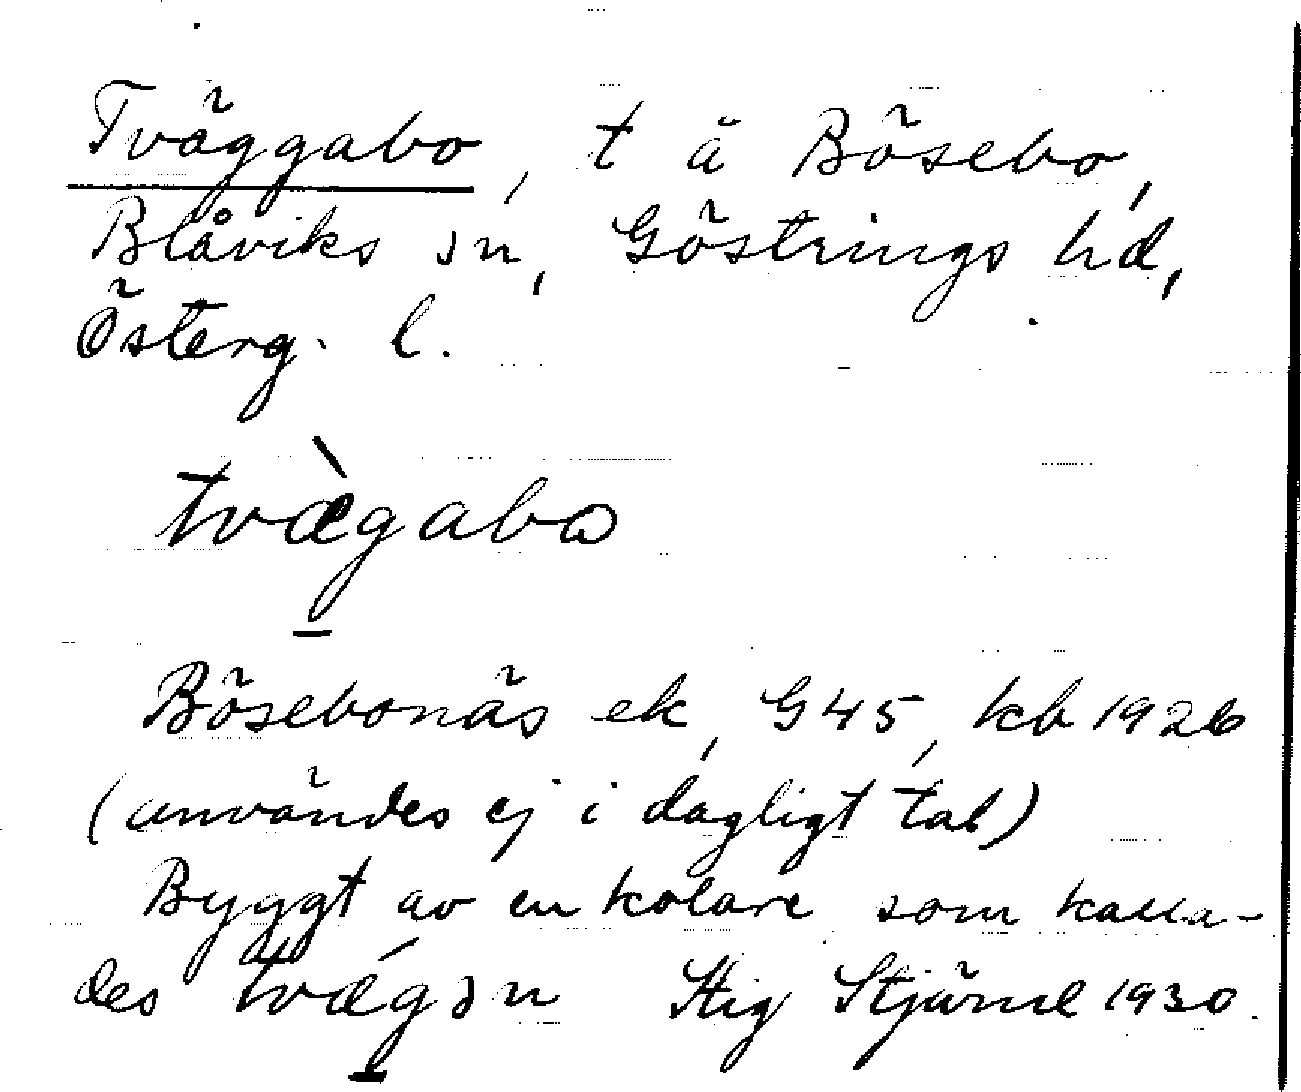 Tväggabo, t å Bösebo,
Blåviks sn, Göstrings hd,
Österg. l.
tvæ̀gabo
Bösebonäs ek, G45, kb 1926
(användes ej i dagligt tal)
Byggt av en kolare som kalla-
des tvǽgən Stig Stjärne 1930.